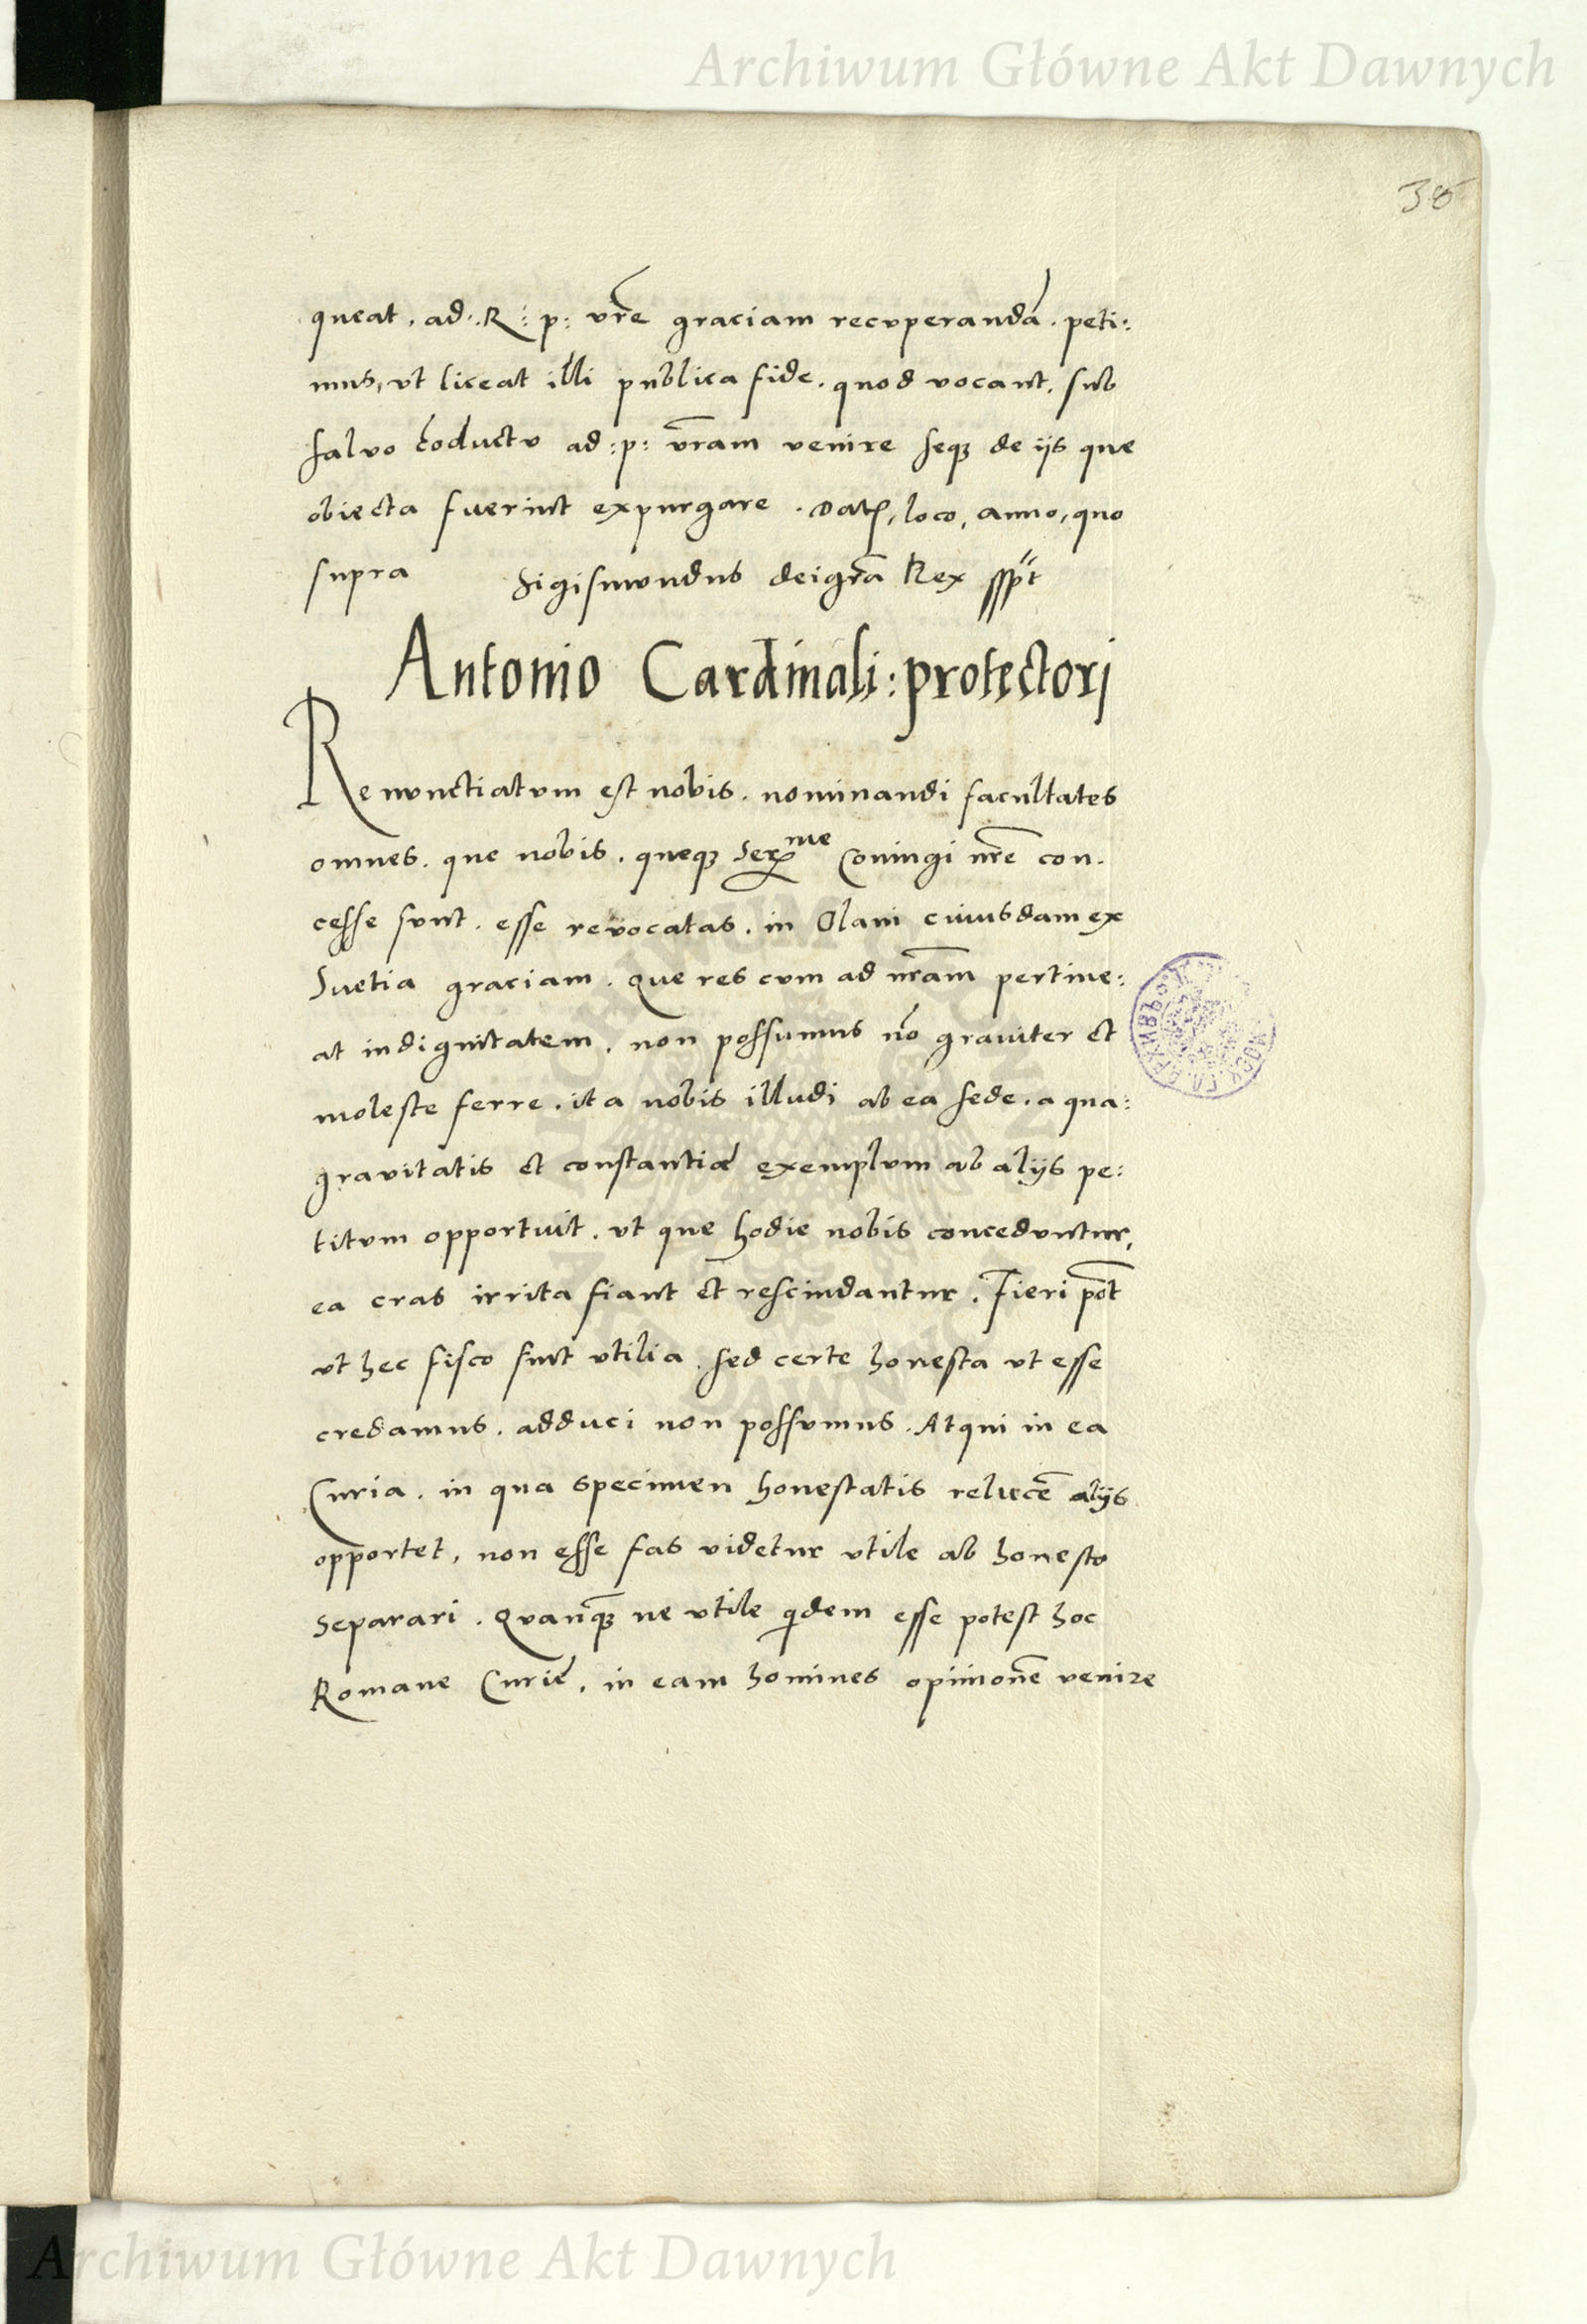 Archiwum Główne Akt Dawnych
38
queat . ad : R : p : vr̃e graciam recuperandā . peti:
mus, ut liceat illi publica fide . quod vocant . sub
salvo cōductu ad : p : vr̃am venire seqꝫ de ijs que
obiecta fuerint expurgare . Datꝭ, loco, anno, quo
supra Sigismundus dei gr̃a Rex sspt
Antonio Cardinali : protectori
Renunctiatum est nobis . nominandi facultates
omnes . que nobis . queqꝫ Serme Coniugi nr̃e con.
cesse sunt . esse revocatas . in Olani cuiusdam ex
Suetia graciam . Que res cum ad nr̃am pertine:
at indignitatem . non possumus nō graviter et
moleste ferre . ita nobis illudi ab ea sede . a qua:
gravitatis et constantiæ exemplum ab alijs pe:
titum opportuit . ut que hodie nobis conceduntur,
ea cras irrita fiant et rescindantur . Fieri pōt
ut hec fisco sint utilia . sed certe honesta ut esse
credamus . adduci non possumus . Atqui in ea
Curia . in qua specimen honestatis relucē̃ alijs
opportet, non esse fas videtur utile ab honesto
separari . Quanqꝫ ne utile qidem esse potest hoc
Romane Curię . in eam homines opinionē venire
Archiwum Główne Akt Dawnych